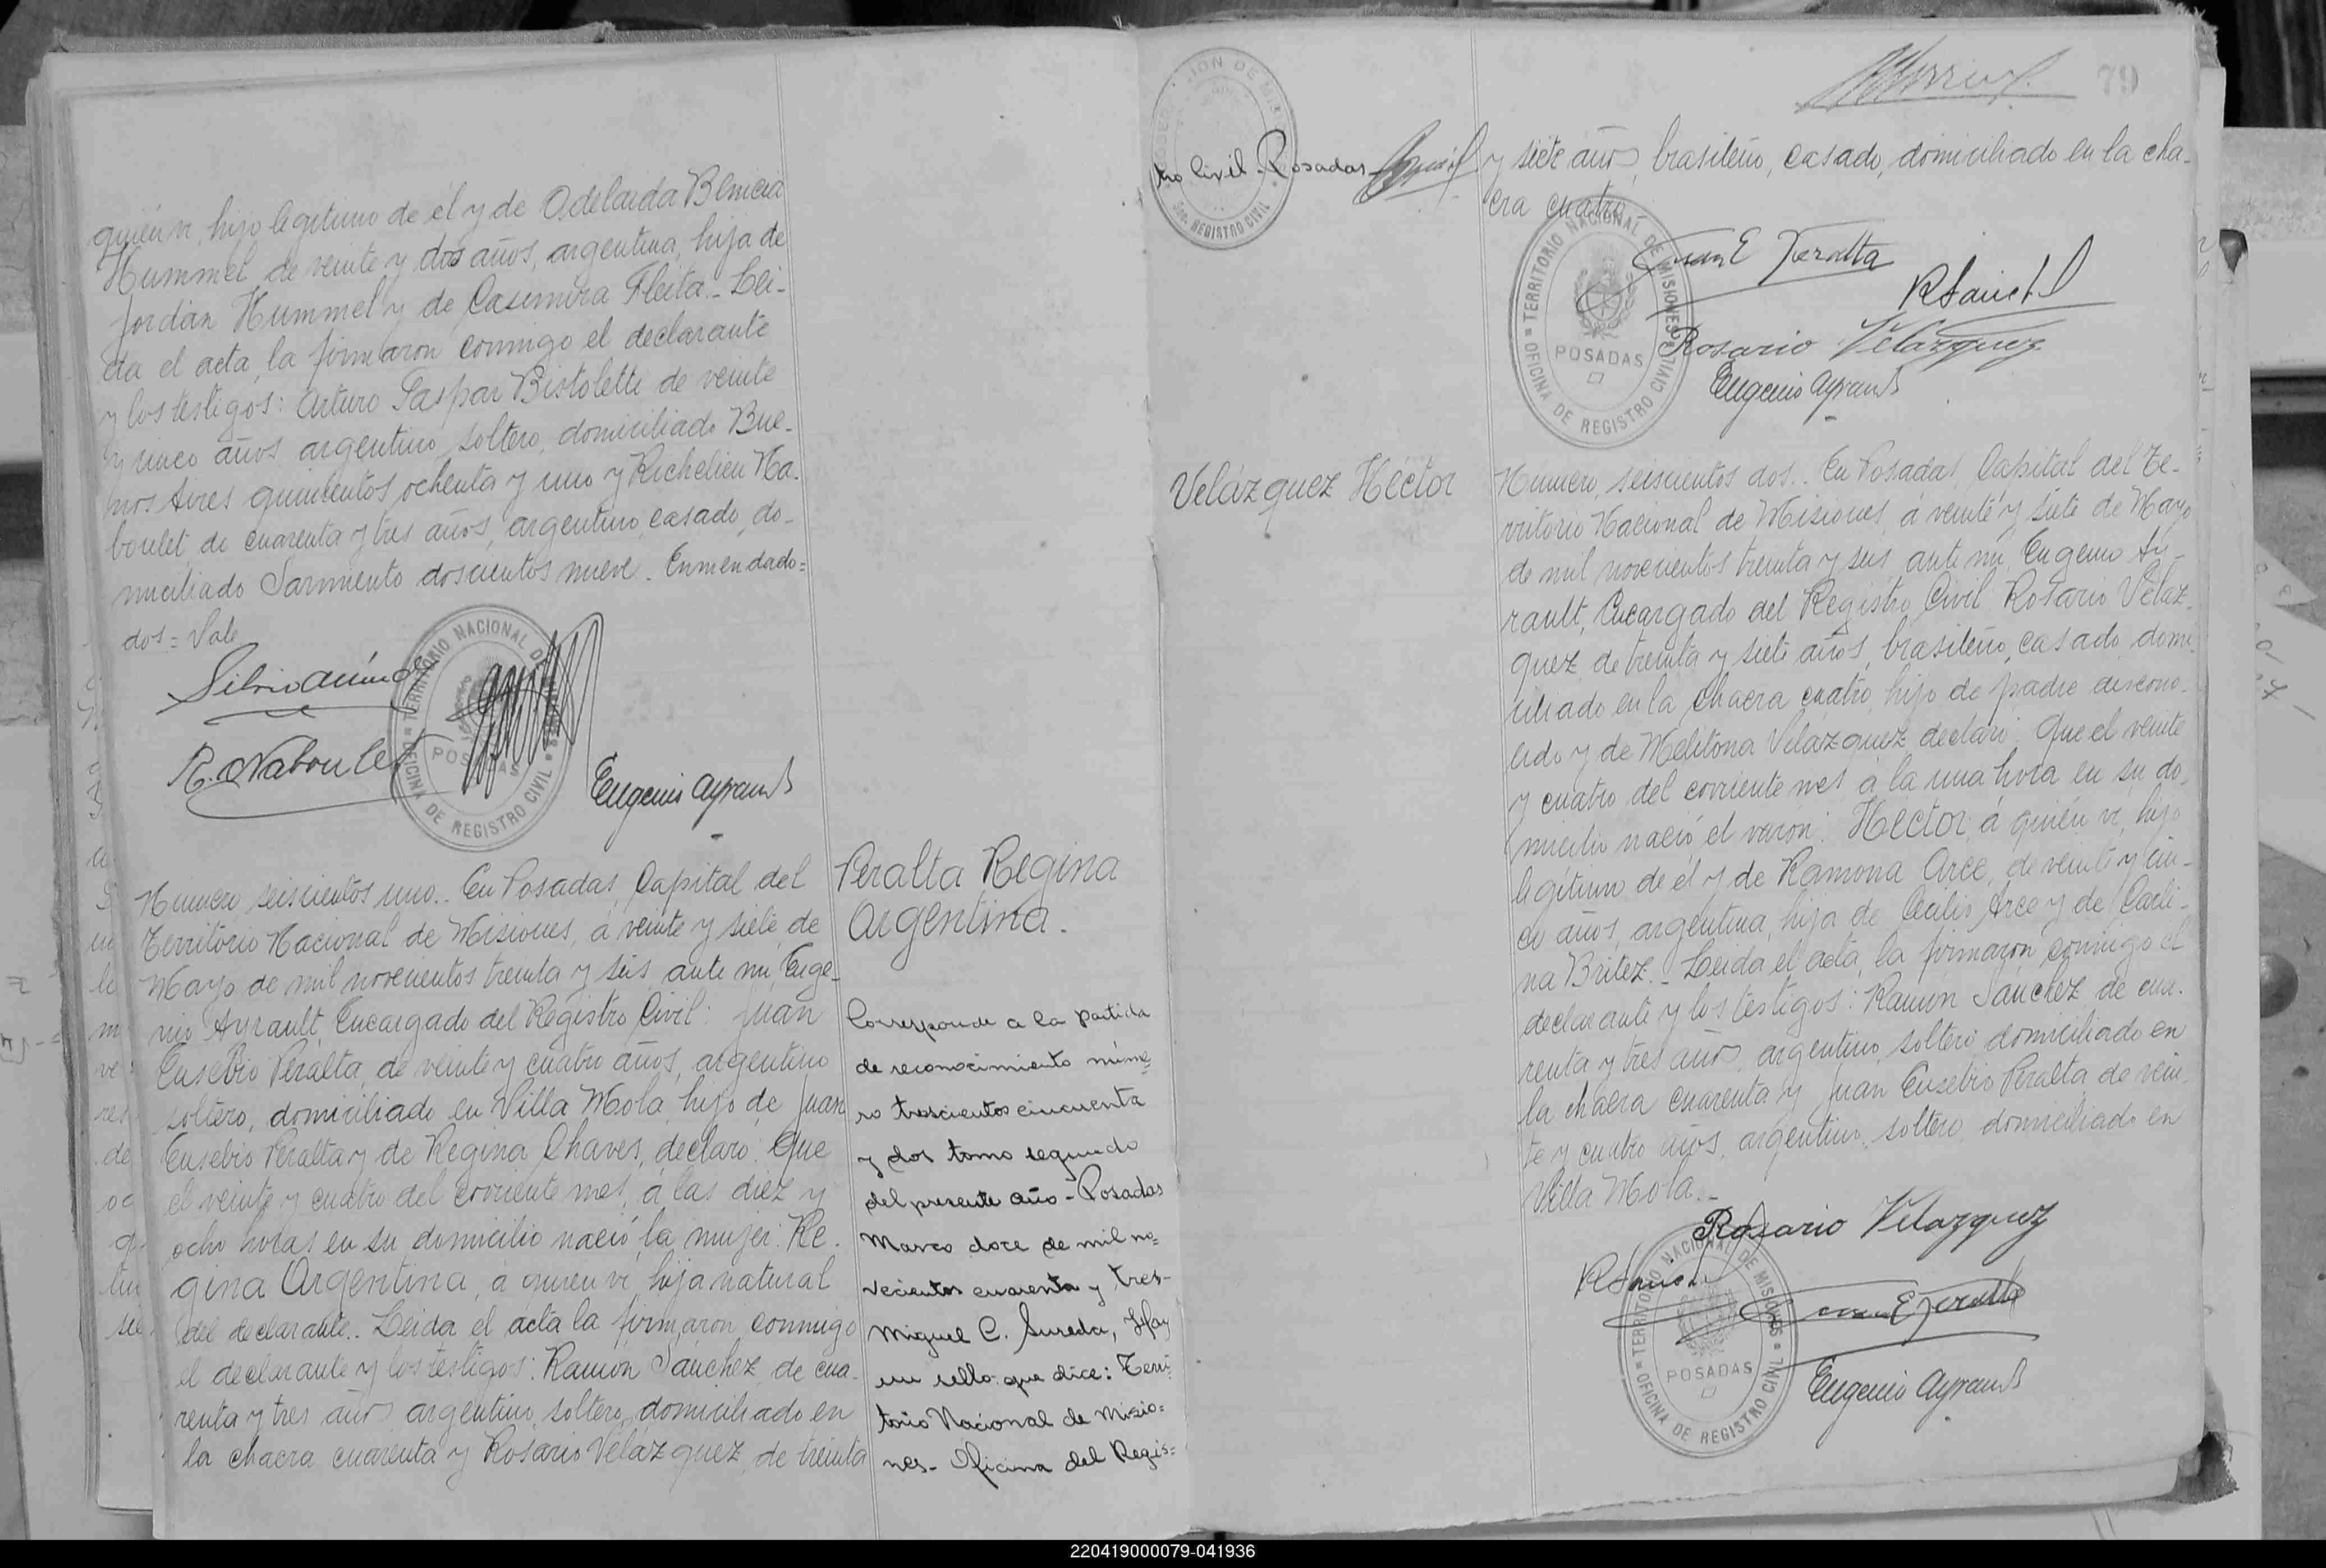 quién ví, hijo legítimo de él y de Adelaida Blencia
Hummel de veinte y dos años, argentina, hija de
Jordán Hummel y de Casimira Fleita.- Leí-
da el acta, la firmaron conmigo el declarante
y los testigos: Arturo Gaspar Bistoletti de veinte
y cinco años, argentino, soltero, domiciliado Bue-
nos Aires quinientos ochenta y uno y Richelieu Na-
boulet, de cuarenta y tres años, argentino, casado, do-
miciliado Sarmiento doscientos nueve.- Enmendado=
dos= Vale
R. Naboulet
Eugenio Ayrault
TERRITORIO NACIONAL DE MISIONES
POSADAS
OFICINA DE REGISTRO CIVIL
Número seiscientos uno.. En Posadas, Capital del
Territorio Nacional de Misiones, á veinte y siete de
Mayo de mil novecientos treinta y seis, ante mí, Euge-
nio Ayrault, Encargado del Registro Civil: Juan
Eusebio Peralta, de veinte y cuatro años, argentino
soltero, domiciliado en Villa Mola, hijo de Juan
Eusebio Peralta y de Regina Chaves, declaró: Que
el veinte y cuatro del corriente mes, á las diez y
ocho horas en su domicilio nació la mujer: Re-
gina Argentina, á quien ví, hija natural
del declarante.. Leída el acta la firmaron conmigo
el declarante y los testigos: Ramón Sánchez, de cua-
renta y tres años, argentino, soltero, domiciliado en
la chacra cuarenta y Rosario Velázquez, de treinta
Peralta Regina
Argentina.
Corresponde a la partida
de reconocimiento núme=
ro trescientos cincuenta
y dos tomo segundo
del presente año - Posadas
Marzo doce de mil no=
vecientos cuarenta y tres-
Miguel C. Sureda, Hay
un sello que dice: Terri=
torio Nacional de Misio=
nes- Oficina del Regis=
tro Civil-Posadas
REGISTRO CIVIL
79
y siete años, brasileño, casado, domiciliado en la cha-
cra cuatro.-
Juan E Peralta
R Sánchez
Rosario Velázquez
Eugenio Ayrault
TERRITORIO NACIONAL DE MISIONES
POSADAS
OFICINA DE REGISTRO CIVIL
Velázquez Héctor
Número seiscientos dos.. En Posadas, Capital del Te-
rritorio Nacional de Misiones, á veinte y siete de Mayo
de mil novecientos treinta y seis, ante mí, Eugenio Ay-
rault, Encargado del Registro Civil: Rosario Veláz-
quez, de treinta y siete años, brasileño, casado, domi-
ciliado en la chacra cuatro, hijo de padre descono-
cido y de Melitona Velázquez, declaró: Que el veinte
y cuatro del corriente mes, á la una hora en su do-
micilio nació el varón: Héctor, á quién ví, hijo
legítimo de él y de Ramona Arce, de veinte y cin-
co años, argentina, hija de Cecilio Arce y de Carli-
na Britez.- Leída el acta, la firmaron conmigo el
declarante y los testigos: Ramón Sánchez, de cua-
renta y tres años, argentino, soltero, domiciliado en
la chacra cuarenta y Juan Eusebio Peralta de vein-
te y cuatro años, argentino, soltero, domiciliado en
Villa Mola.-
Rosario Velazquez
R Sánchez
Juan E Peralta
Eugenio Ayrault
TERRITORIO NACIONAL DE MISIONES
POSADAS
OFICINA DE REGISTRO CIVIL
220419000079-041936